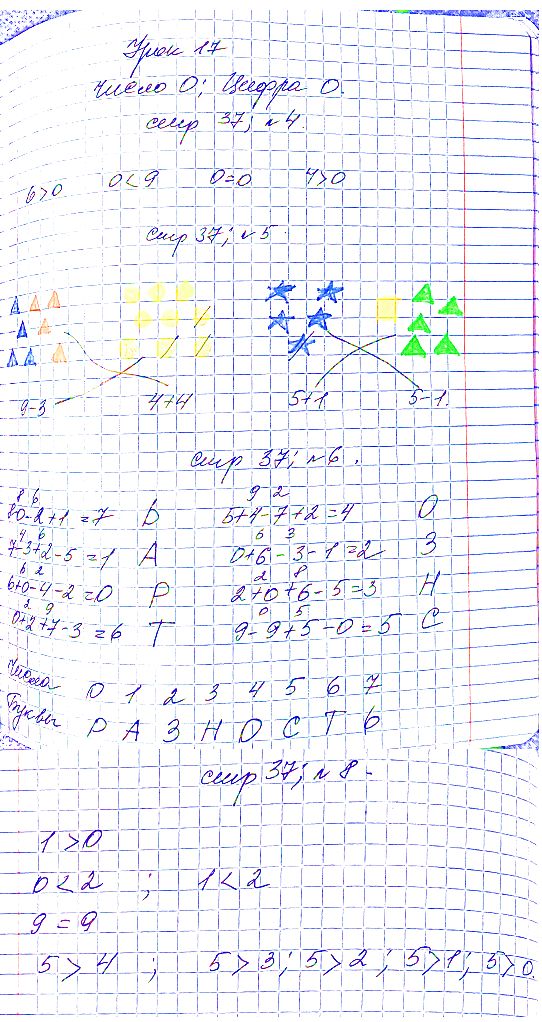 Урок 17
Число 0; Цифра 0.
стр 37; №4.
6>0 0<9 0=0 4>0
стр 37; №5.
9-3 4+4 5+1 5-1.
стр 37; №6.
8 6 9 2
10-2+1=7 Ь 5+4-7+2=4 О
4 6 6 3
7-3+2-5=1 А 0+6-3-1=2 З
6 2 2 8
6+0-4-2=0 Р 2+0+6-5=3 Н
2 9 0 5
0+2+7-3=6 Т 9-9+5-0=5 С
Числа 0 1 2 3 4 5 6 7
Буквы Р А З Н О С Т Ь
стр 37; №8.
1>0
0<2 ; 1<2
9=9
5>4 ; 5>3; 5>2; 5>1; 5>0